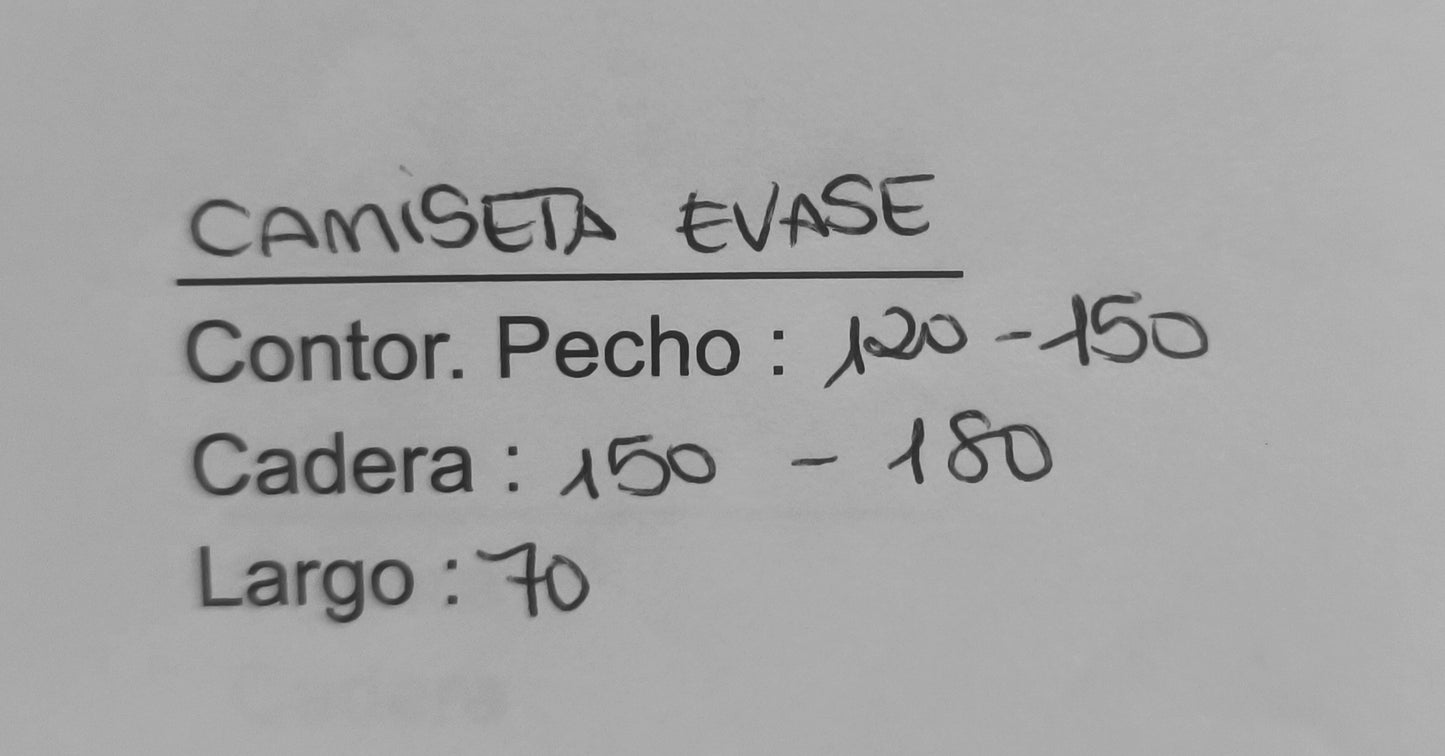 CAMISETA EVASE
Contor. Pecho : 120 - 150
Cadera : 150 - 180
Largo : 70